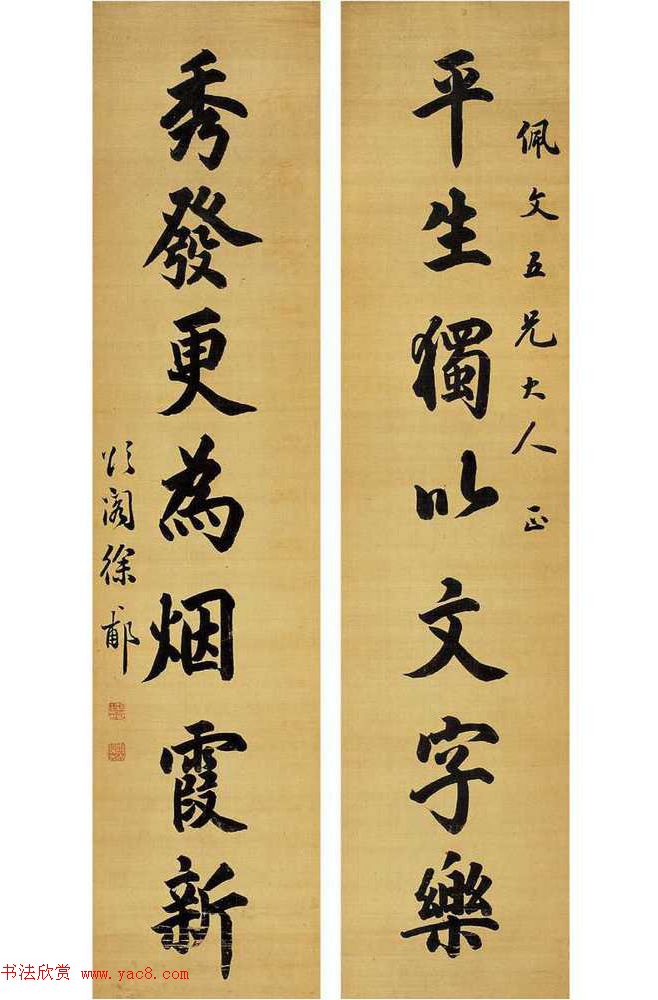 佩文五兄大人正
平生獨以文字樂
秀發更為烟霞新
頌閣徐郙
书法欣赏 www.yac8.com